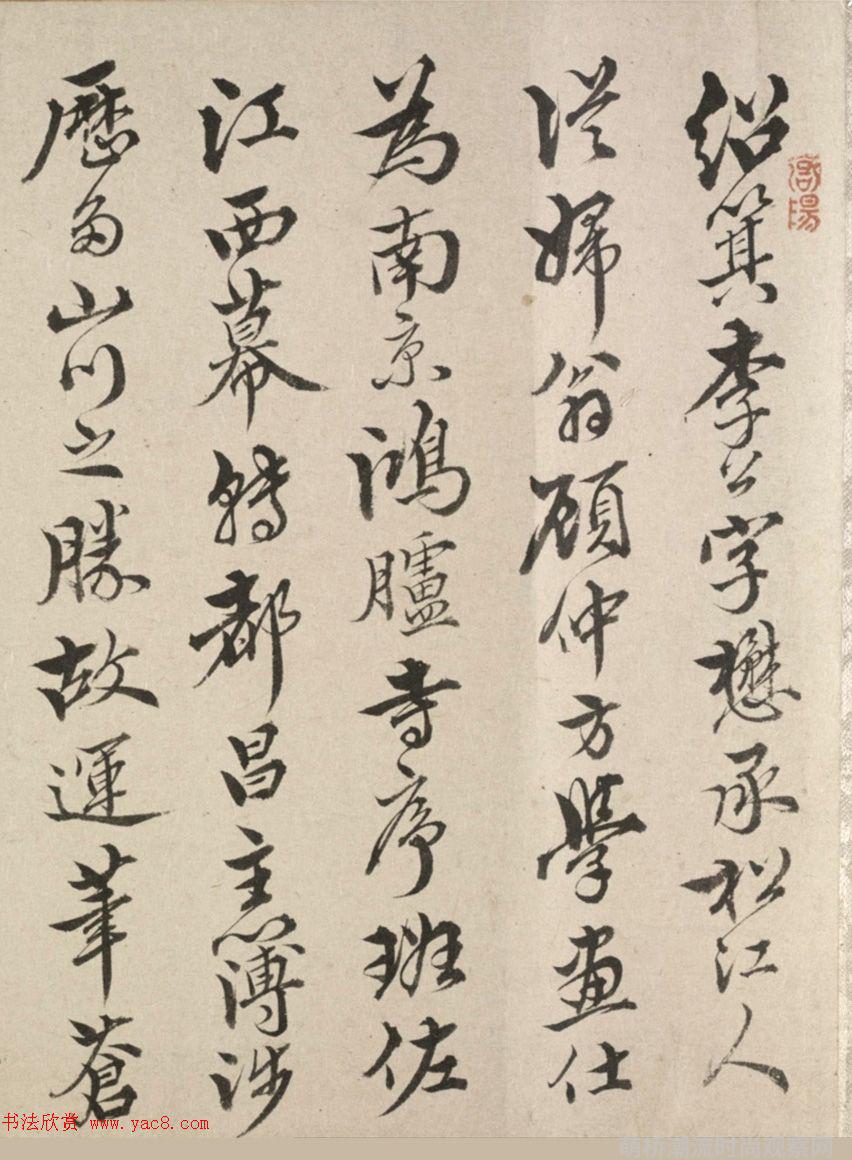 紹箕李公字懋承松江人
從婦翁顧仲方學畫仕
為南京鴻臚寺序班佐
江西幕轉都昌主簿涉
歷多山川之勝故運筆蒼
书法欣赏 www.yac8.com